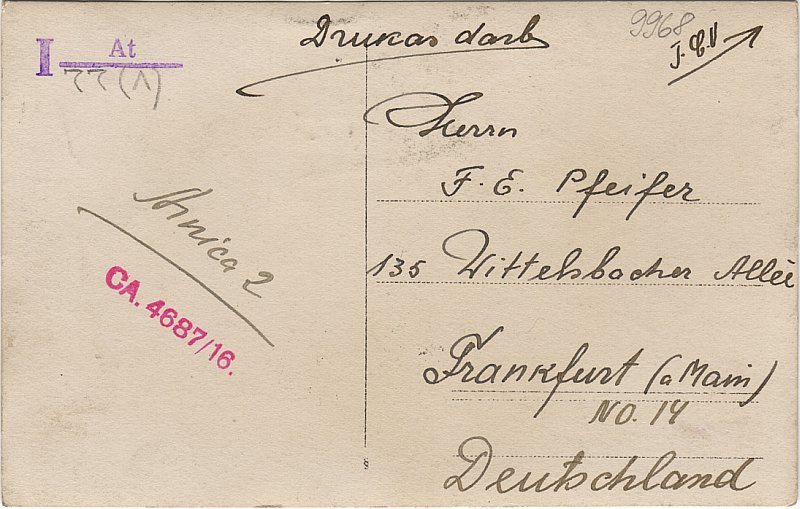 I At
22 (1)
Drukas darbs
9968
Herrn
F. E. Pfeifer
135 Wittelsbacher Allée
Frankfurt (a Main)
NO. 14
Deutschland
CA. 4687/16.